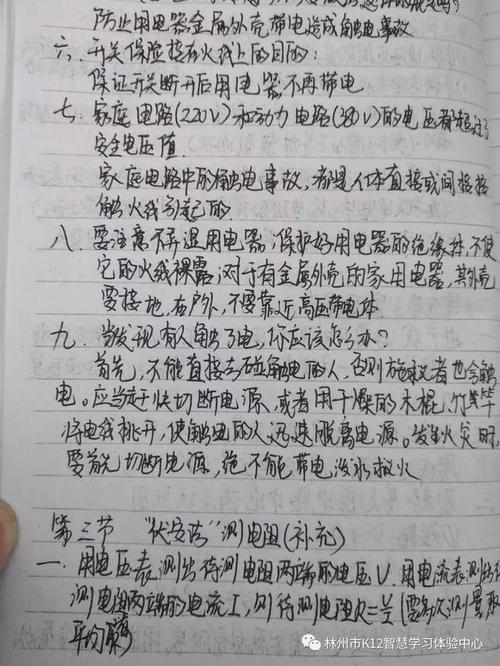 防止用电器金属外壳带电造成触电事故
六、开关保险接在火线上的目的:
保证开关断开后用电器不再带电
七、家庭电路(220V)和动力电路(380V)的电压都超过了
安全电压值.
家庭电路中的触电事故,都是人体直接或间接接
触火线引起的.
八、要注意不弄湿用电器,保护好用电器的绝缘性,不使
它的火线裸露,对于有金属外壳的家用电器,其外壳
要接地,在户外,不要靠近高压带电体.
九、当发现有人触了电,你应该怎么办?
首先,不能直接去碰触电的人,否则施救者也会触
电。应当赶快切断电源,或者用干燥的木棍,竹竿等
将电线挑开,使触电的人迅速脱离电源。发生火灾时,
要首先切断电源,绝不能带电泼水救火
第三节 "伏安法"测电阻(补充)
一、用电压表测出待测电阻两端的电压U,用电流表测出待
测电阻两端的电流I,则待测电阻R=U/I(要多次测量取
平均
林州市K12智慧学习体验中心